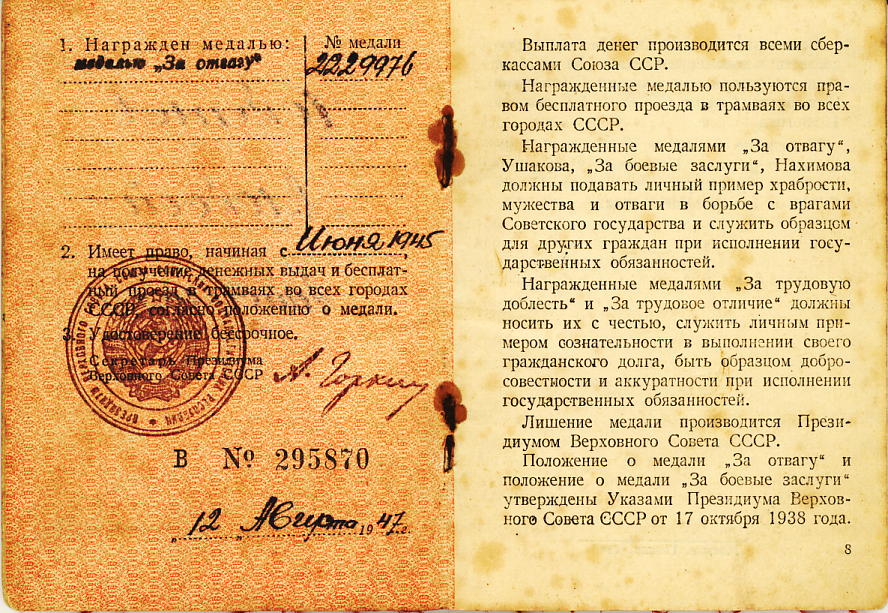 1. Награжден медалью:
№ медали
медалью „За отвагу“
2229976
2. Имеет право, начиная с Июня 1945,
на получение денежных выдач и бесплат-
ный проезд в трамваях во всех городах
СССР, согласно положению о медали.
3. Удостоверение бессрочное.
Секретарь Президиума
Верховного Совета СССР
А. Горкин
В № 295870
„12„ Августа 1947 г.
Выплата денег производится всеми сбер-
кассами Союза ССР.
Награжденные медалью пользуются пра-
вом бесплатного проезда в трамваях во всех
городах СССР.
Награжденные медалями „За отвагу“,
Ушакова, „За боевые заслуги“, Нахимова
должны подавать личный пример храбрости,
мужества и отваги в борьбе с врагами
Советского государства и служить образцом
для других граждан при исполнении госу-
дарственных обязанностей.
Награжденные медалями „За трудовую
доблесть“ и „За трудовое отличие“ должны
носить их с честью, служить личным при-
мером сознательности в выполнении своего
гражданского долга, быть образцом добро-
совестности и аккуратности при исполнении
государственных обязанностей.
Лишение медали производится Прези-
диумом Верховного Совета СССР.
Положение о медали „За отвагу“ и
положение о медали „За боевые заслуги“
утверждены Указами Президиума Верхов-
ного Совета СССР от 17 октября 1938 года.
8